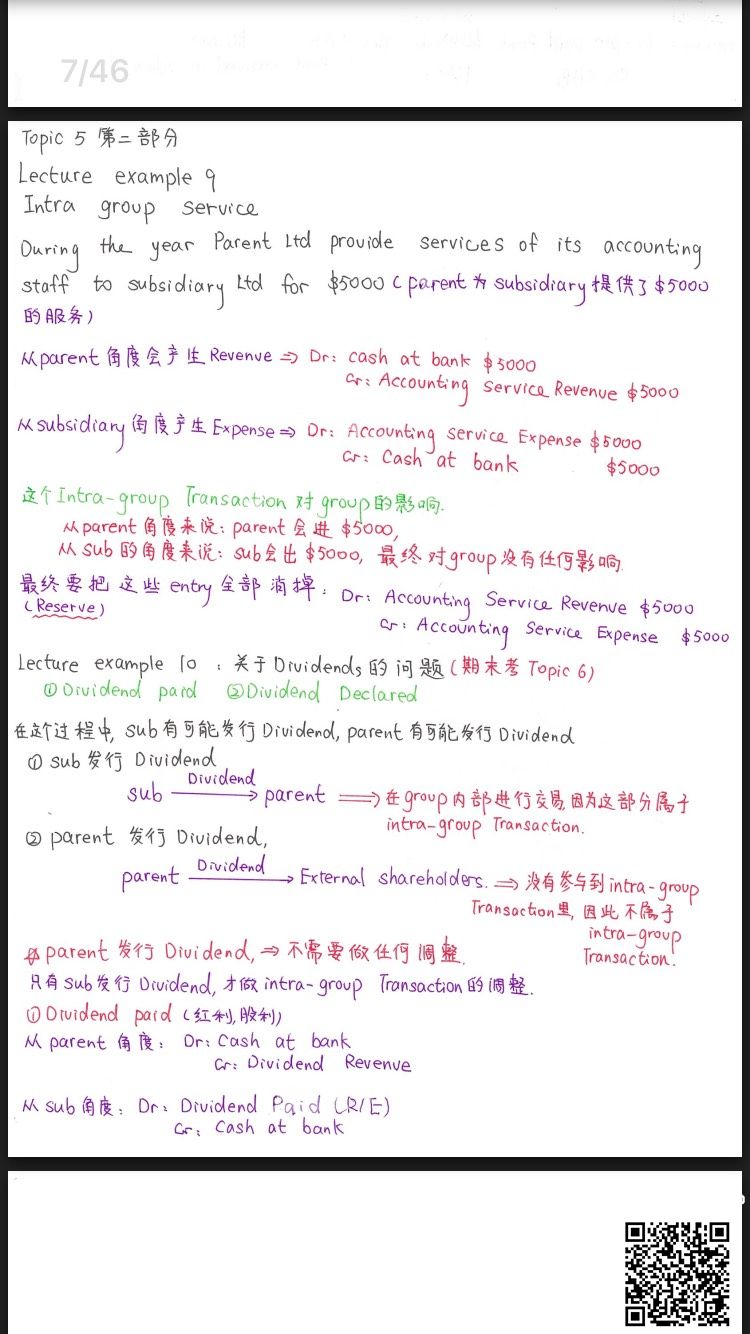 7/46
Topic 5 第二部分
Lecture example 9
Intra group service
During the year Parent Ltd provide services of its accounting
staff to subsidiary Ltd for $5000 (parent 为 subsidiary 提供了 $5000
的服务)
从parent 角度会产生 Revenue ⇒ Dr: cash at bank $5000
Cr: Accounting Service Revenue $5000
从subsidiary 角度产生 Expense ⇒ Dr: Accounting service Expense $5000
Cr: Cash at bank $5000
这个 Intra-group Transaction 对 group 的影响.
从parent 角度来说: parent 会进 $5000,
从 sub 的角度来说: sub会出 $5000, 最终对group没有任何影响.
最终要把这些 entry 全部消掉: Dr: Accounting Service Revenue $5000
(Reserve)
Cr: Accounting Service Expense $5000
Lecture example 10 : 关于Dividends的问题 (期末考 Topic 6)
① Dividend paid ② Dividend Declared
在这个过程中, sub 有可能发行 Dividend, parent 有可能发行 Dividend
① sub 发行 Dividend
Dividend
sub → parent ⇒ 在group内部进行交易,因为这部分属于
intra-group Transaction.
② parent 发行 Dividend,
Dividend
parent → External shareholders. ⇒ 没有参与到 intra-group
Transaction里, 因此不属于
intra-group
Transaction.
parent 发行 Dividend, ⇒ 不需要做任何调整.
只有 sub 发行 Dividend, 才做 intra-group Transaction 的调整.
① Dividend paid (红利,股利)
从 parent 角度: Dr: Cash at bank
Cr: Dividend Revenue
从 sub 角度: Dr: Dividend Paid (R/E)
Cr: Cash at bank